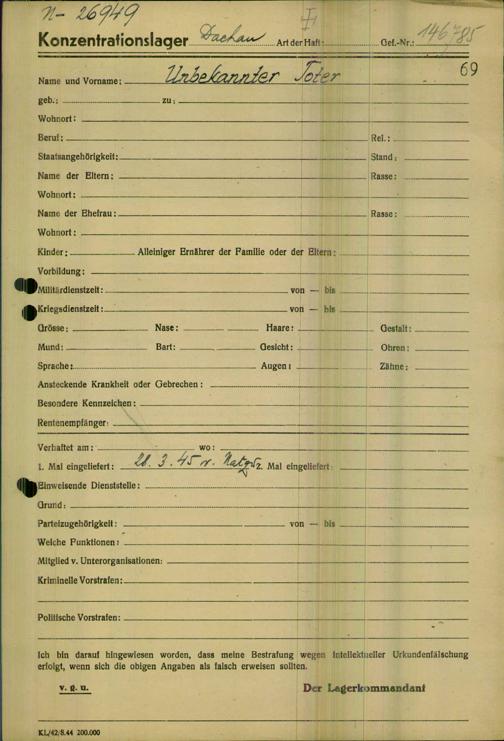 n- 26949
Konzentrationslager Dachau Art der Haft: Gef.-Nr.: 146785
69
Name und Vorname: Unbekannter Toter
geb.: zu:
Wohnort:
Beruf: Rel.:
Staatsangehörigkeit: Stand:
Name der Eltern: Rasse:
Wohnort:
Name der Ehefrau: Rasse:
Wohnort:
Kinder: Alleiniger Ernährer der Familie oder der Eltern:
Vorbildung:
Militärdienstzeit: von — bis
Kriegsdienstzeit: von — bis
Grösse: Nase: Haare: Gestalt:
Mund: Bart: Gesicht: Ohren:
Sprache: Augen: Zähne:
Ansteckende Krankheit oder Gebrechen:
Besondere Kennzeichen:
Rentenempfänger:
Verhaftet am: wo:
1. Mal eingeliefert: 28. 3. 45 v. Natzw. 2. Mal eingeliefert:
Einweisende Dienststelle:
Grund:
Parteizugehörigkeit: von — bis
Welche Funktionen:
Mitglied v. Unterorganisationen:
Kriminelle Vorstrafen:
Politische Vorstrafen:
Ich bin darauf hingewiesen worden, dass meine Bestrafung wegen intellektueller Urkundenfälschung
erfolgt, wenn sich die obigen Angaben als falsch erweisen sollten.
v. g. u. Der Lagerkommandant
KL/42/8.44 200.000